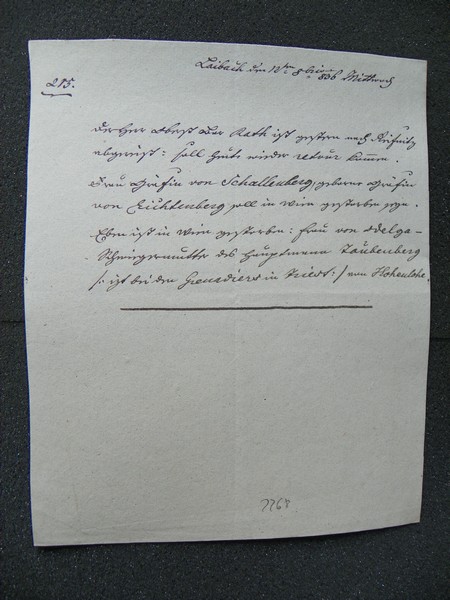 Laibach den 12ten 8ber 836 Mittwoch
215.
Der Herr Oberst Bar. Rath ist gestern nach
abgereist: soll heute wieder retour kommen.
Frau Gräfin von Schallenberg, geborne Gräfin
von Lichtenberg soll in Wien gestorben seyn.
Eben ist in Wien gestorben: Frau von
Schwiegermutter des Hauptmann Taubenberg
/: ist bei den Grenadiers in Triest :/ von Hohenlohe.